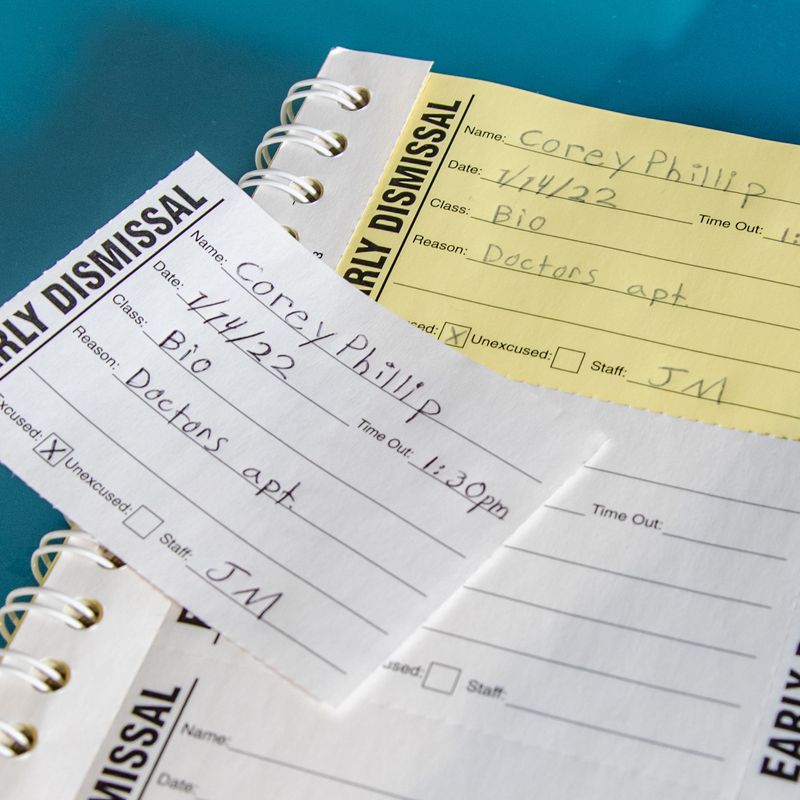 EARLY DISMISSAL
Name: Corey Phillip
Date: 1/14/22
Class: Bio Time Out: 1:
Reason: Doctors apt.
used: X Unexcused: Staff: JM
EARLY DISMISSAL
Name: Corey Phillip
Date: 1/14/22
Class: Bio Time Out: 1:30pm
Reason: Doctors apt.
Excused: X Unexcused: Staff: JM
Time Out:
used: Staff:
MISSAL
Name:
Date:
EARLY